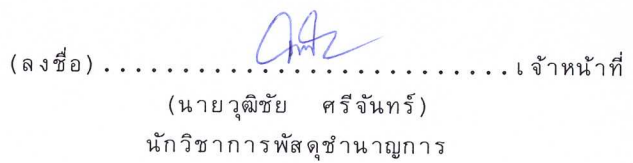 (ลงชื่อ)..............................เจ้าหน้าที่
(นายวุฒิชัย ศรีจันทร์)
นักวิชาการพัสดุชำนาญการ